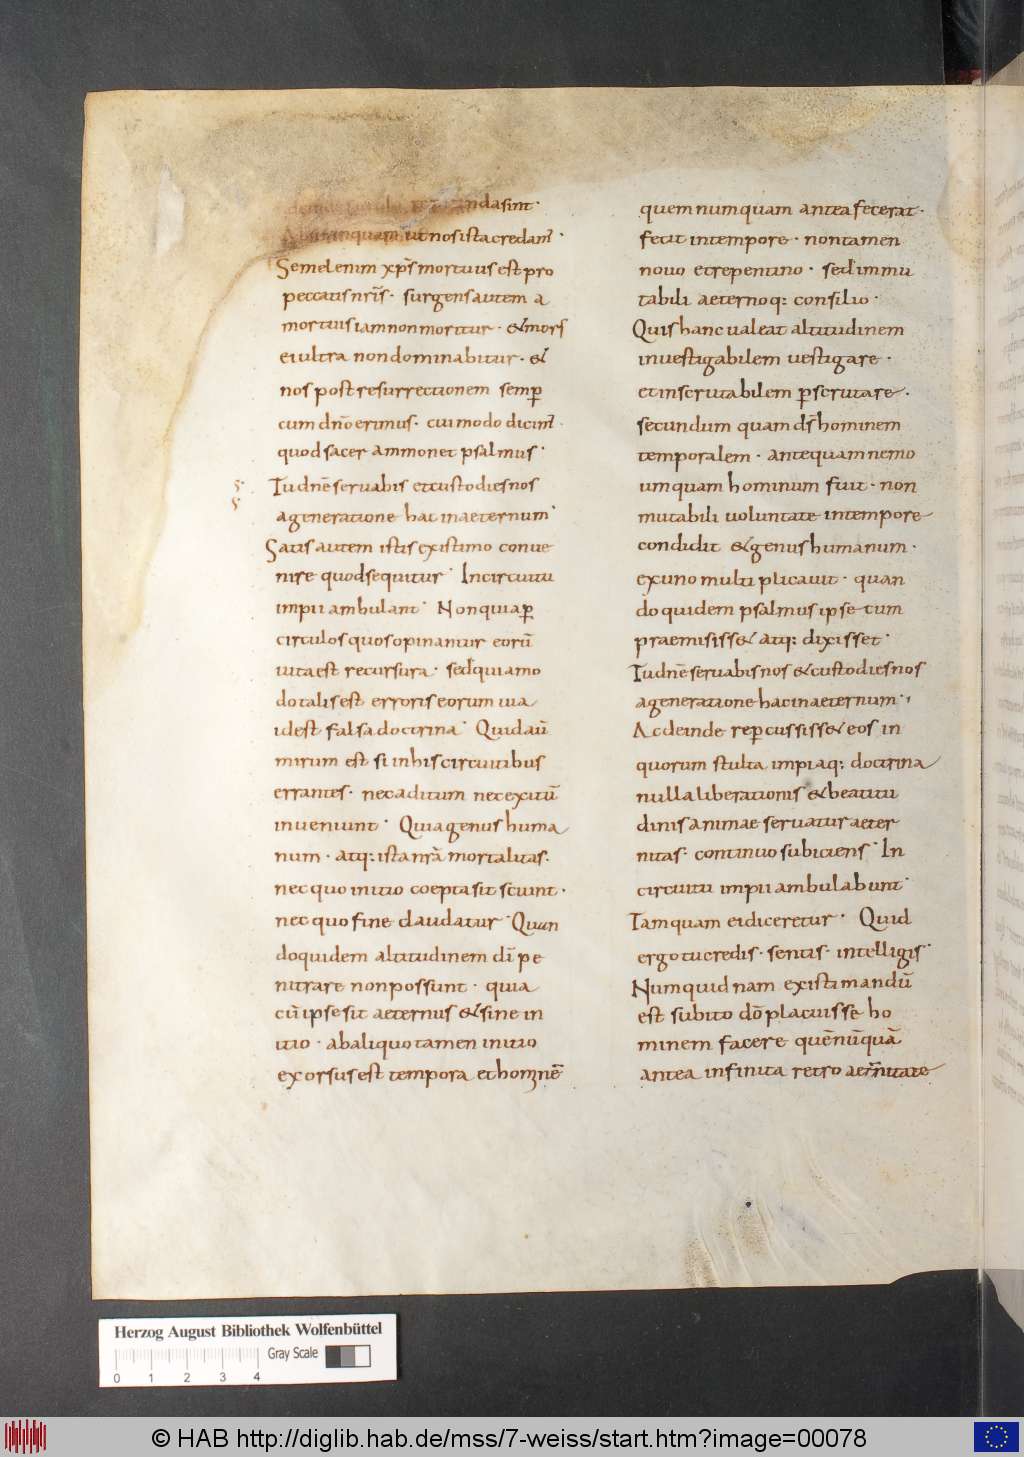 ndasint·
ut nos ista credam̄·
Semel enim xp̄s mortuus est pro
peccatis nr̄is· surgens autem a
mortuis iam non moritur· & mors
ei ultra non dominabitur· &
nos post resurrectionem semꝑ
cum dn̄o erimus· cui modo dicim̄·
quod sacer ammonet psalmus·
Tu dn̄e servabis et custodies nos
a generatione hac in aeternum·
Satis autem istis existimo conve
nire quod sequitur· In circuitu
impii ambulant· Non quia ꝑ
circulos quos opinantur eorū
vita est recursura· sed quia mo
do talis est erroris eorum via
id est falsa doctrina· Quid aū
mirum est si in his circuitibus
errantes· nec aditum nec exitū
inveniunt· Quia genus huma
num· atq: ista nr̄a mortalitas·
nec quo initio coepta sit sciunt·
nec quo fine claudatur· Quan
do quidem altitudinem dī pe
nitrare non possunt· quia
cū ipse sit aeternus & sine in
itio· ab aliquo tamen initio
exorsus est tempora et hominē
quem numquam antea fecerat·
fecit in tempore· non tamen
novo et repentino· sed immu
tabili aeternoq: consilio·
Quis hanc valeat altitudinem
investigabilem vestigare·
et inscrutabilem ꝑscrutare·
secundum quam ds̄ hominem
temporalem· ante quam nemo
umquam hominum fuit· non
mutabili voluntate in tempore
condidit & genus humanum·
ex uno multiplicavit· quan
do quidem psalmus ipse cum
praemisiss& atq: dixisset·
Tu dn̄e servabis nos & custodies nos
a generatione hac in aeternum·
Ac deinde reꝑcussiss& eos in
quorum stulta impiaq: doctrina
nulla liberationis & beatitu
dinis animae servatur aeter
nitas· continuo subiciens· In
circuitu impii ambulabunt·
Tamquam ei diceretur· Quid
ergo tu credis· sentis· intelligis·
Numquid nam existimandū
est subito dō placuisse ho
minem facere quē nūquā
antea infinita retro aet̄nitate
Herzog August Bibliothek Wolfenbüttel
Gray Scale
0 1 2 3 4
© HAB http://diglib.hab.de/mss/7-weiss/start.htm?image=00078